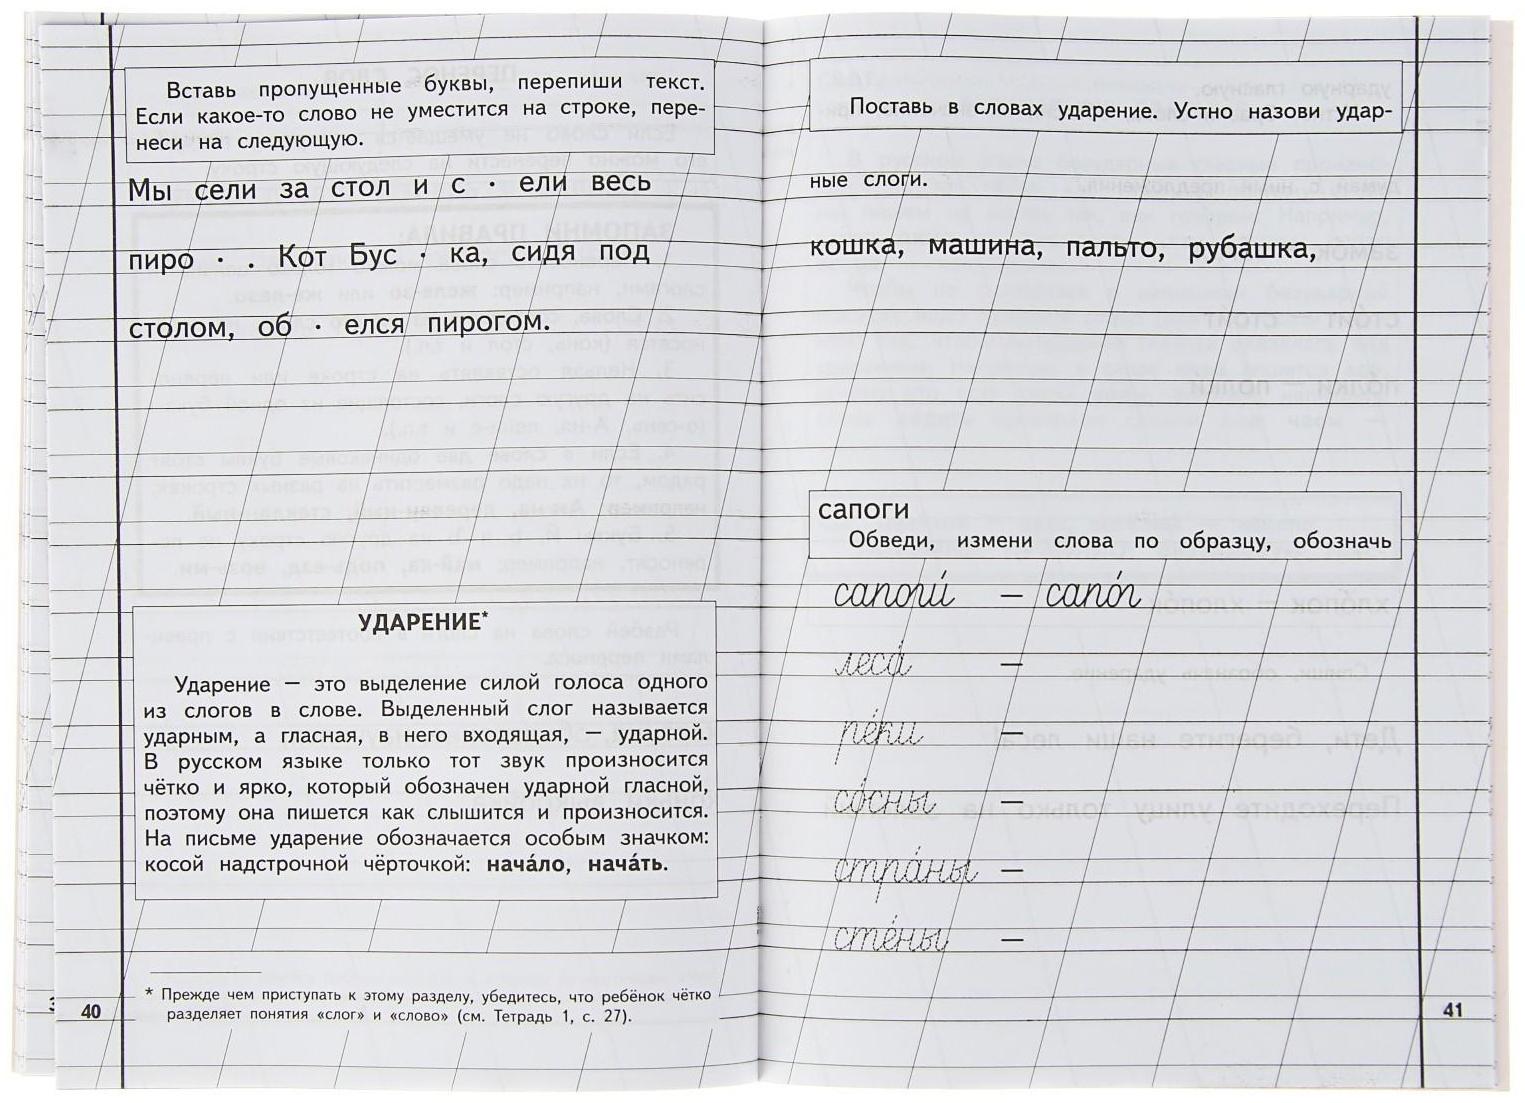 Вставь пропущенные буквы, перепиши текст.
Если какое-то слово не уместится на строке, пере-
неси на следующую.
Мы сели за стол и с · ели весь
пиро · . Кот Бус · ка, сидя под
столом, об · елся пирогом.
УДАРЕНИЕ*
Ударение — это выделение силой голоса одного
из слогов в слове. Выделенный слог называется
ударным, а гласная, в него входящая, — ударной.
В русском языке только тот звук произносится
чётко и ярко, который обозначен ударной гласной,
поэтому она пишется как слышится и произносится.
На письме ударение обозначается особым значком:
косой надстрочной чёрточкой: нача́ло, нача́ть.
* Прежде чем приступать к этому разделу, убедитесь, что ребёнок чётко
разделяет понятия «слог» и «слово» (см. Тетрадь 1, с. 27).
40
Поставь в словах ударение. Устно назови удар-
ные слоги.
кошка, машина, пальто, рубашка,
сапоги
Обведи, измени слова по образцу, обозначь
сапоги́ — сапо́г
леса́ —
ре́ки —
со́сны —
стра́ны —
сте́ны —
41